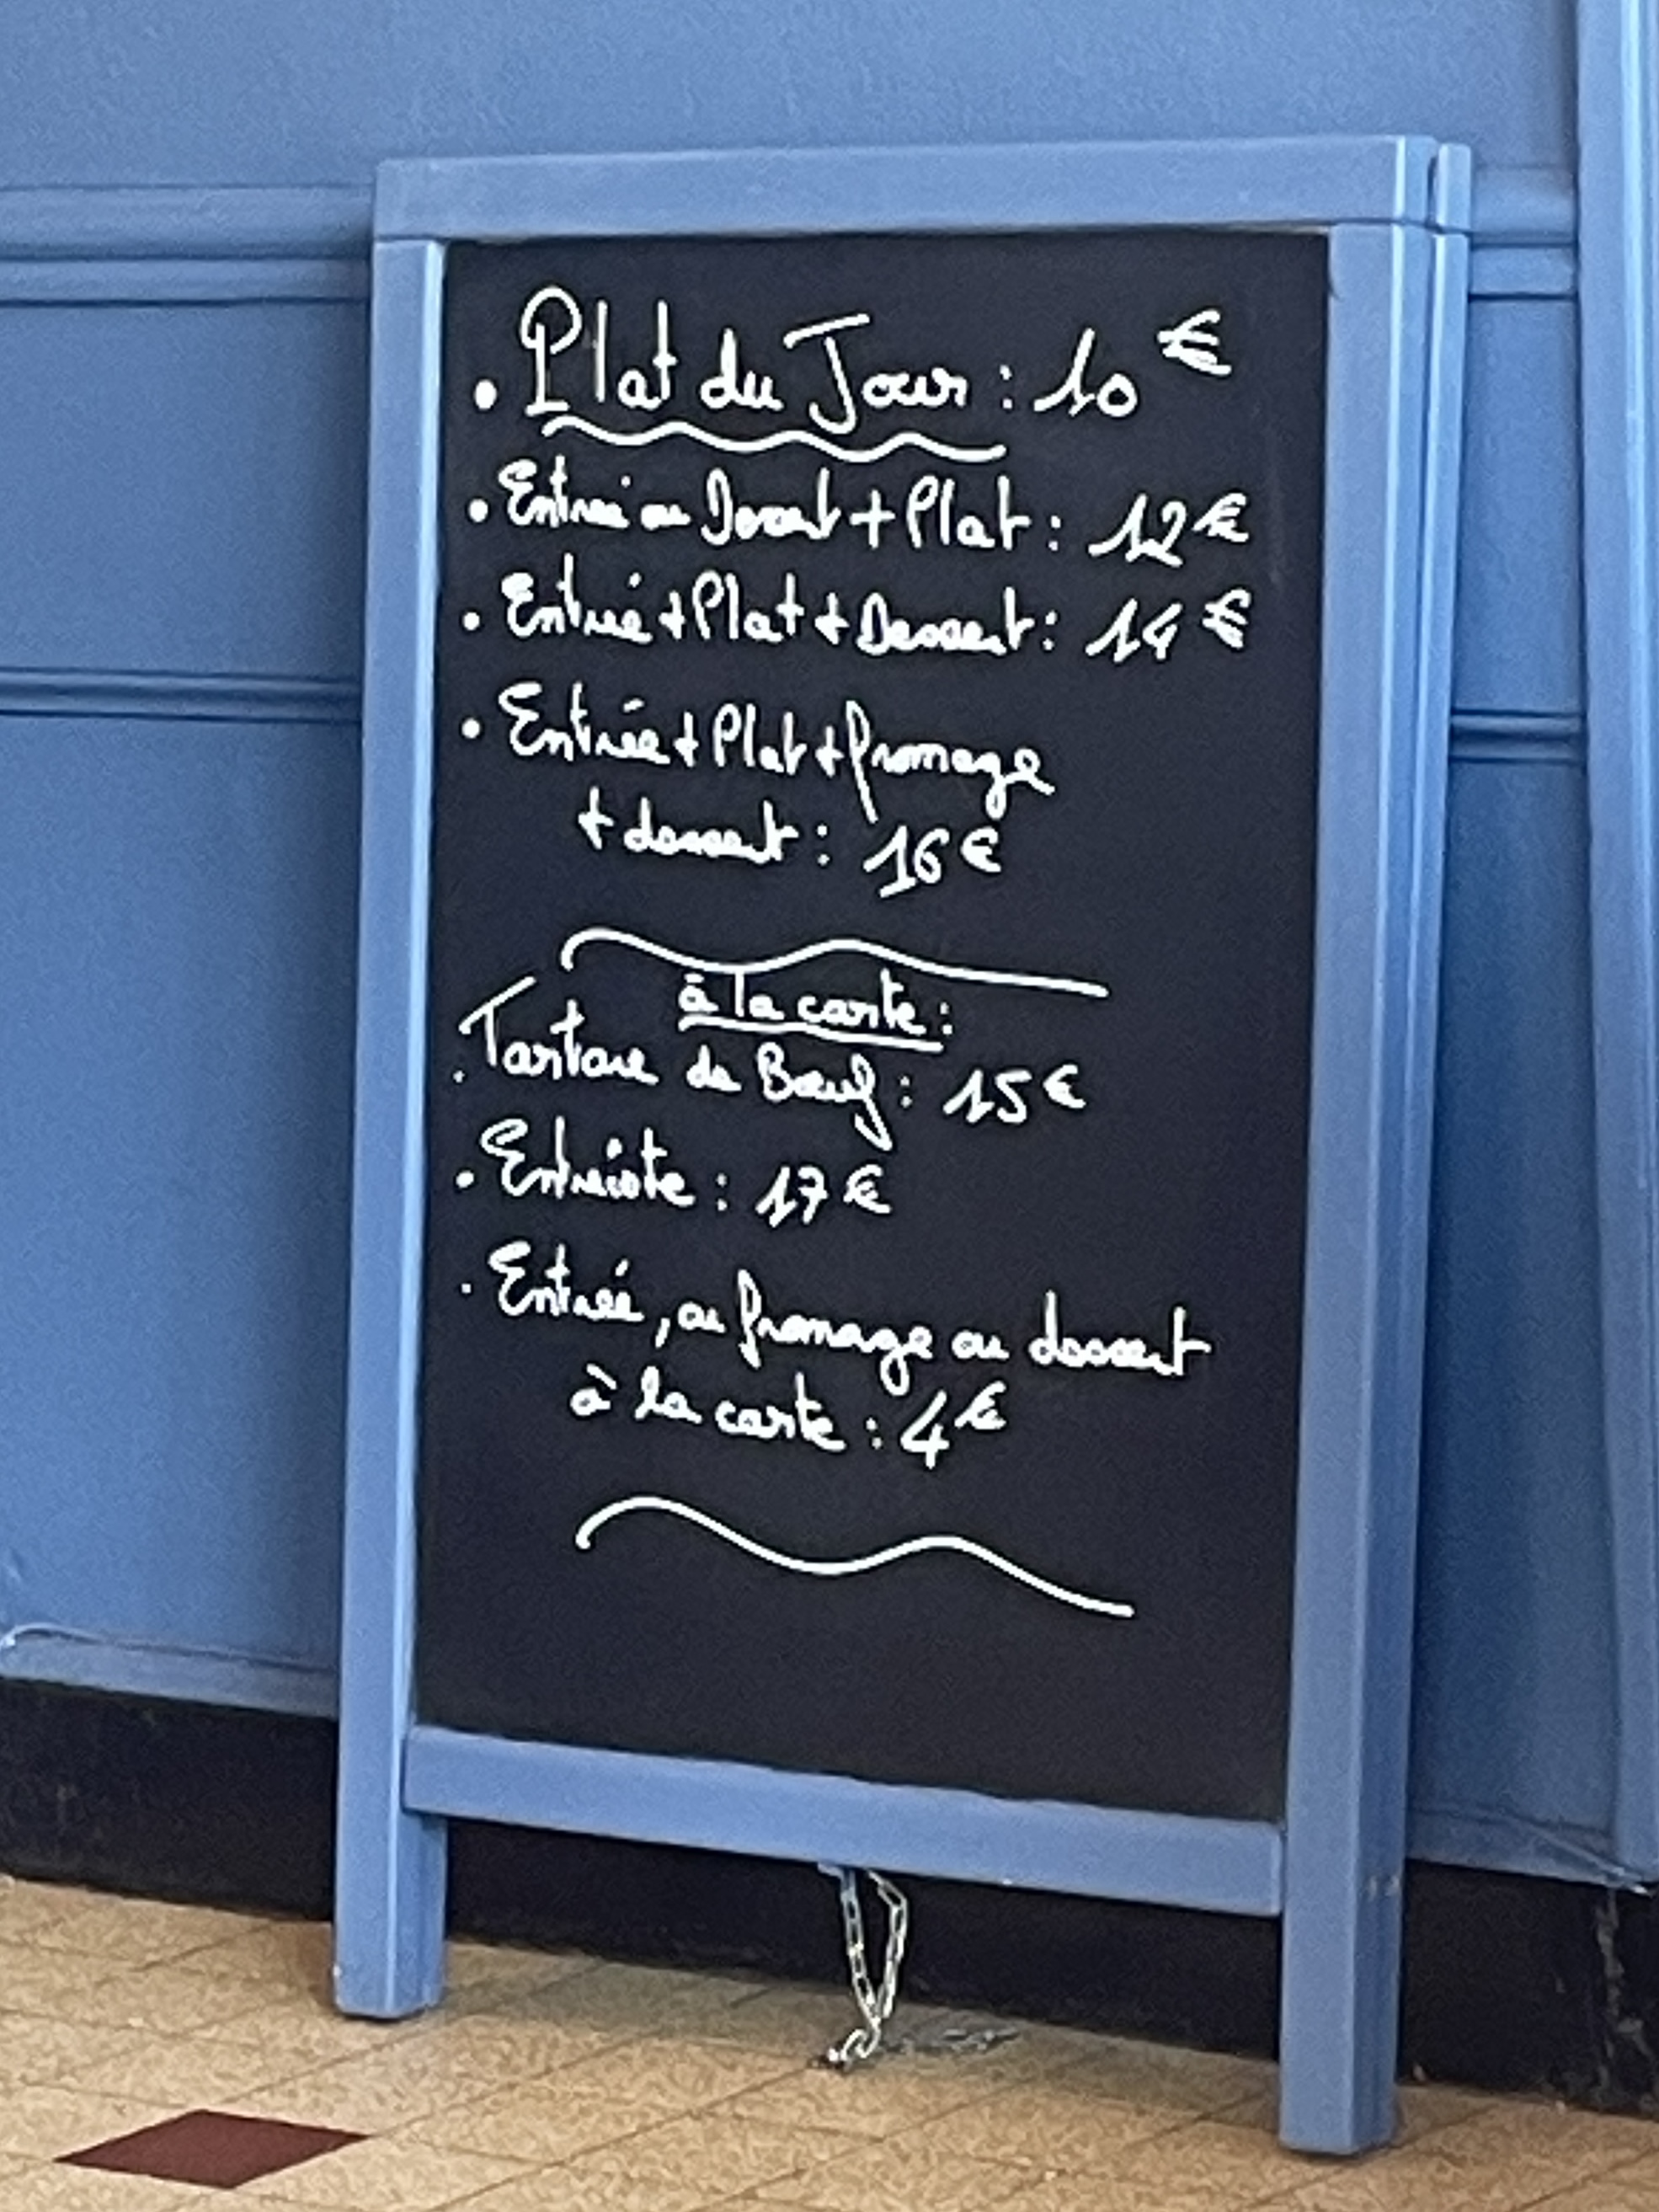 • Plat du Jour : 10€
• Entrée ou Dessert + Plat : 12€
• Entrée + Plat + Dessert : 14€
• Entrée + Plat + fromage
+ dessert : 16€
à la carte :
. Tartare de Bœuf : 15€
• Entrecôte : 17€
. Entrée, ou fromage ou dessert
à la carte : 4€